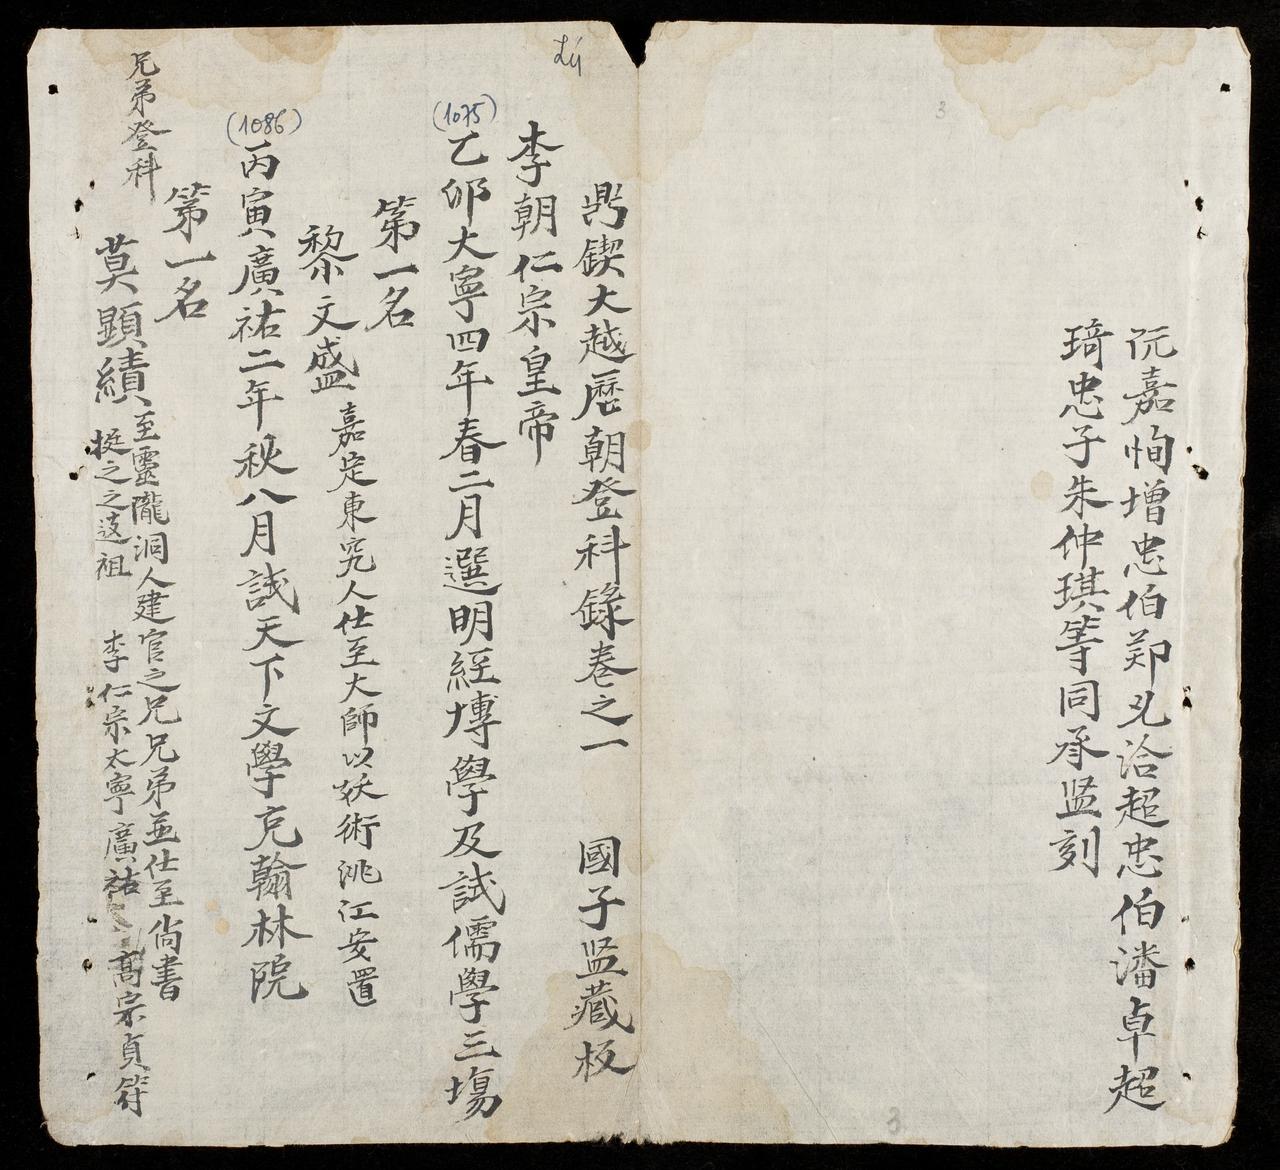 阮嘉恂增忠伯鄭允洽超忠伯潘卓超
琦忠子朱仲琪等同承监刻
3
3
Lý
鼎鍥大越歷朝登科錄卷之一 國子监藏板
李朝仁宗皇帝
(1075)
乙卯大寧四年春二月選明經博學及試儒學三場
第一名
黎文盛 嘉定東究人仕至大師以妖術洮江安置
(1086)
丙寅廣祐二年秋八月試天下文學充翰林院
第一名
兄弟登科
莫顯績 至靈隴洞人建官之兄兄弟並仕至尚書
挺之之遠祖 李仁宗太寧廣祐 高宗貞符